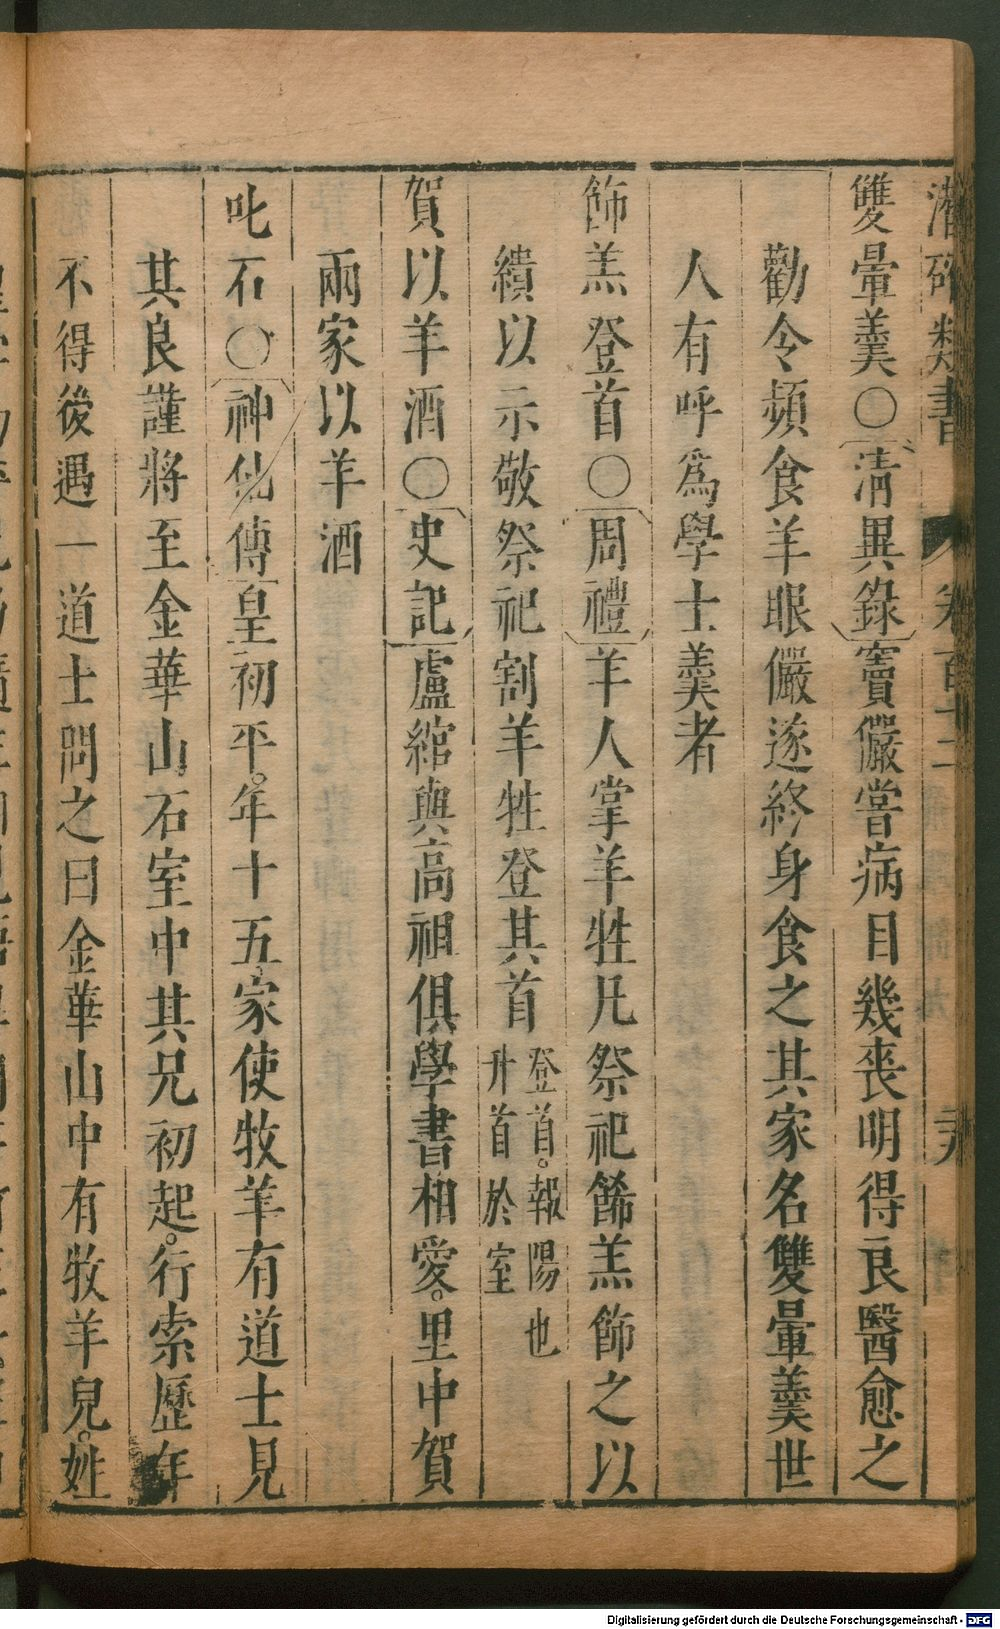 潛確類書 卷百十二
雙暈羹○清異錄竇儼嘗病目幾丧明得良醫愈之
勸令頻食羊眼儼遂終身食之其家名雙暈羹世
人有呼爲學士羹者
飾羔登首○周禮羊人掌羊牲凡祭祀餙羔飾之以
繢以示敬祭祀割羊牲登其首登首報陽也
升首於室
賀以羊酒○史記盧綰與高祖俱學書相愛里中賀
兩家以羊酒
叱石○神仙傳皇初平年十五家使牧羊有道士見
其良謹將至金華山石室中其兄初起行索歷年
不得後遇一道士問之曰金華山中有牧羊兒姓
Digitalisierung gefördert durch die Deutsche Forschungsgemeinschaft - DFG